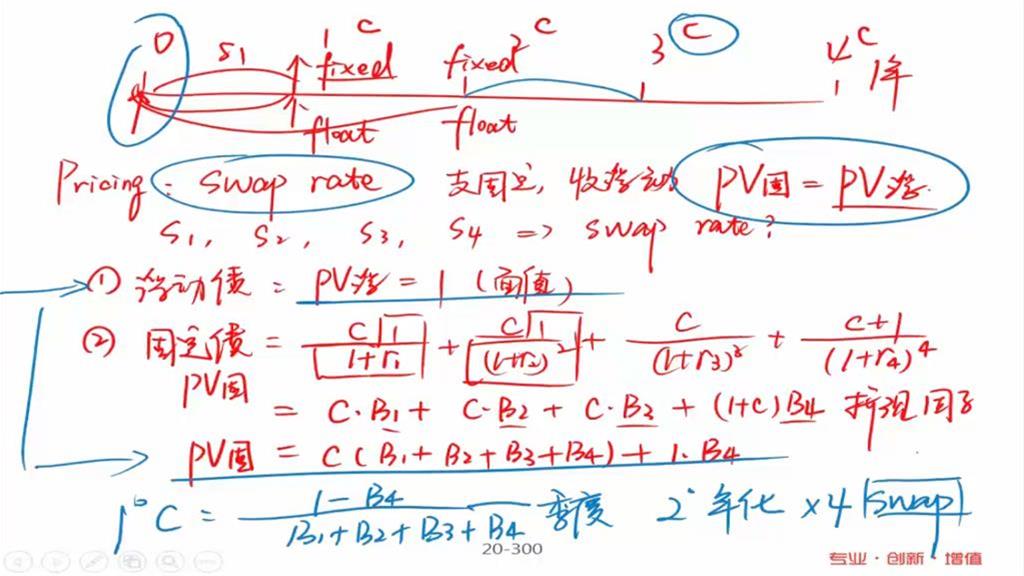 0 1 c 2 c 3 c 4 c
S1 fixed fixed 1年
float float
Pricing: swap rate 支固定, 收浮动 PV固 = PV浮.
S1, S2, S3, S4 => swap rate?
① 浮动债 = PV浮 = 1 (面值)
② 固定债 = C[1]/[1+r1] + C[1]/[(1+r2)^2] + C/(1+r3)^3 + C+1/(1+r4)^4
PV固
= C·B1 + C·B2 + C·B3 + (1+C)B4 折现因子
PV固 = C(B1+B2+B3+B4) + 1·B4
1° C = 1-B4/B1+B2+B3+B4 季度 2° 年化 ×4 swap
20-300
专业·创新·增值